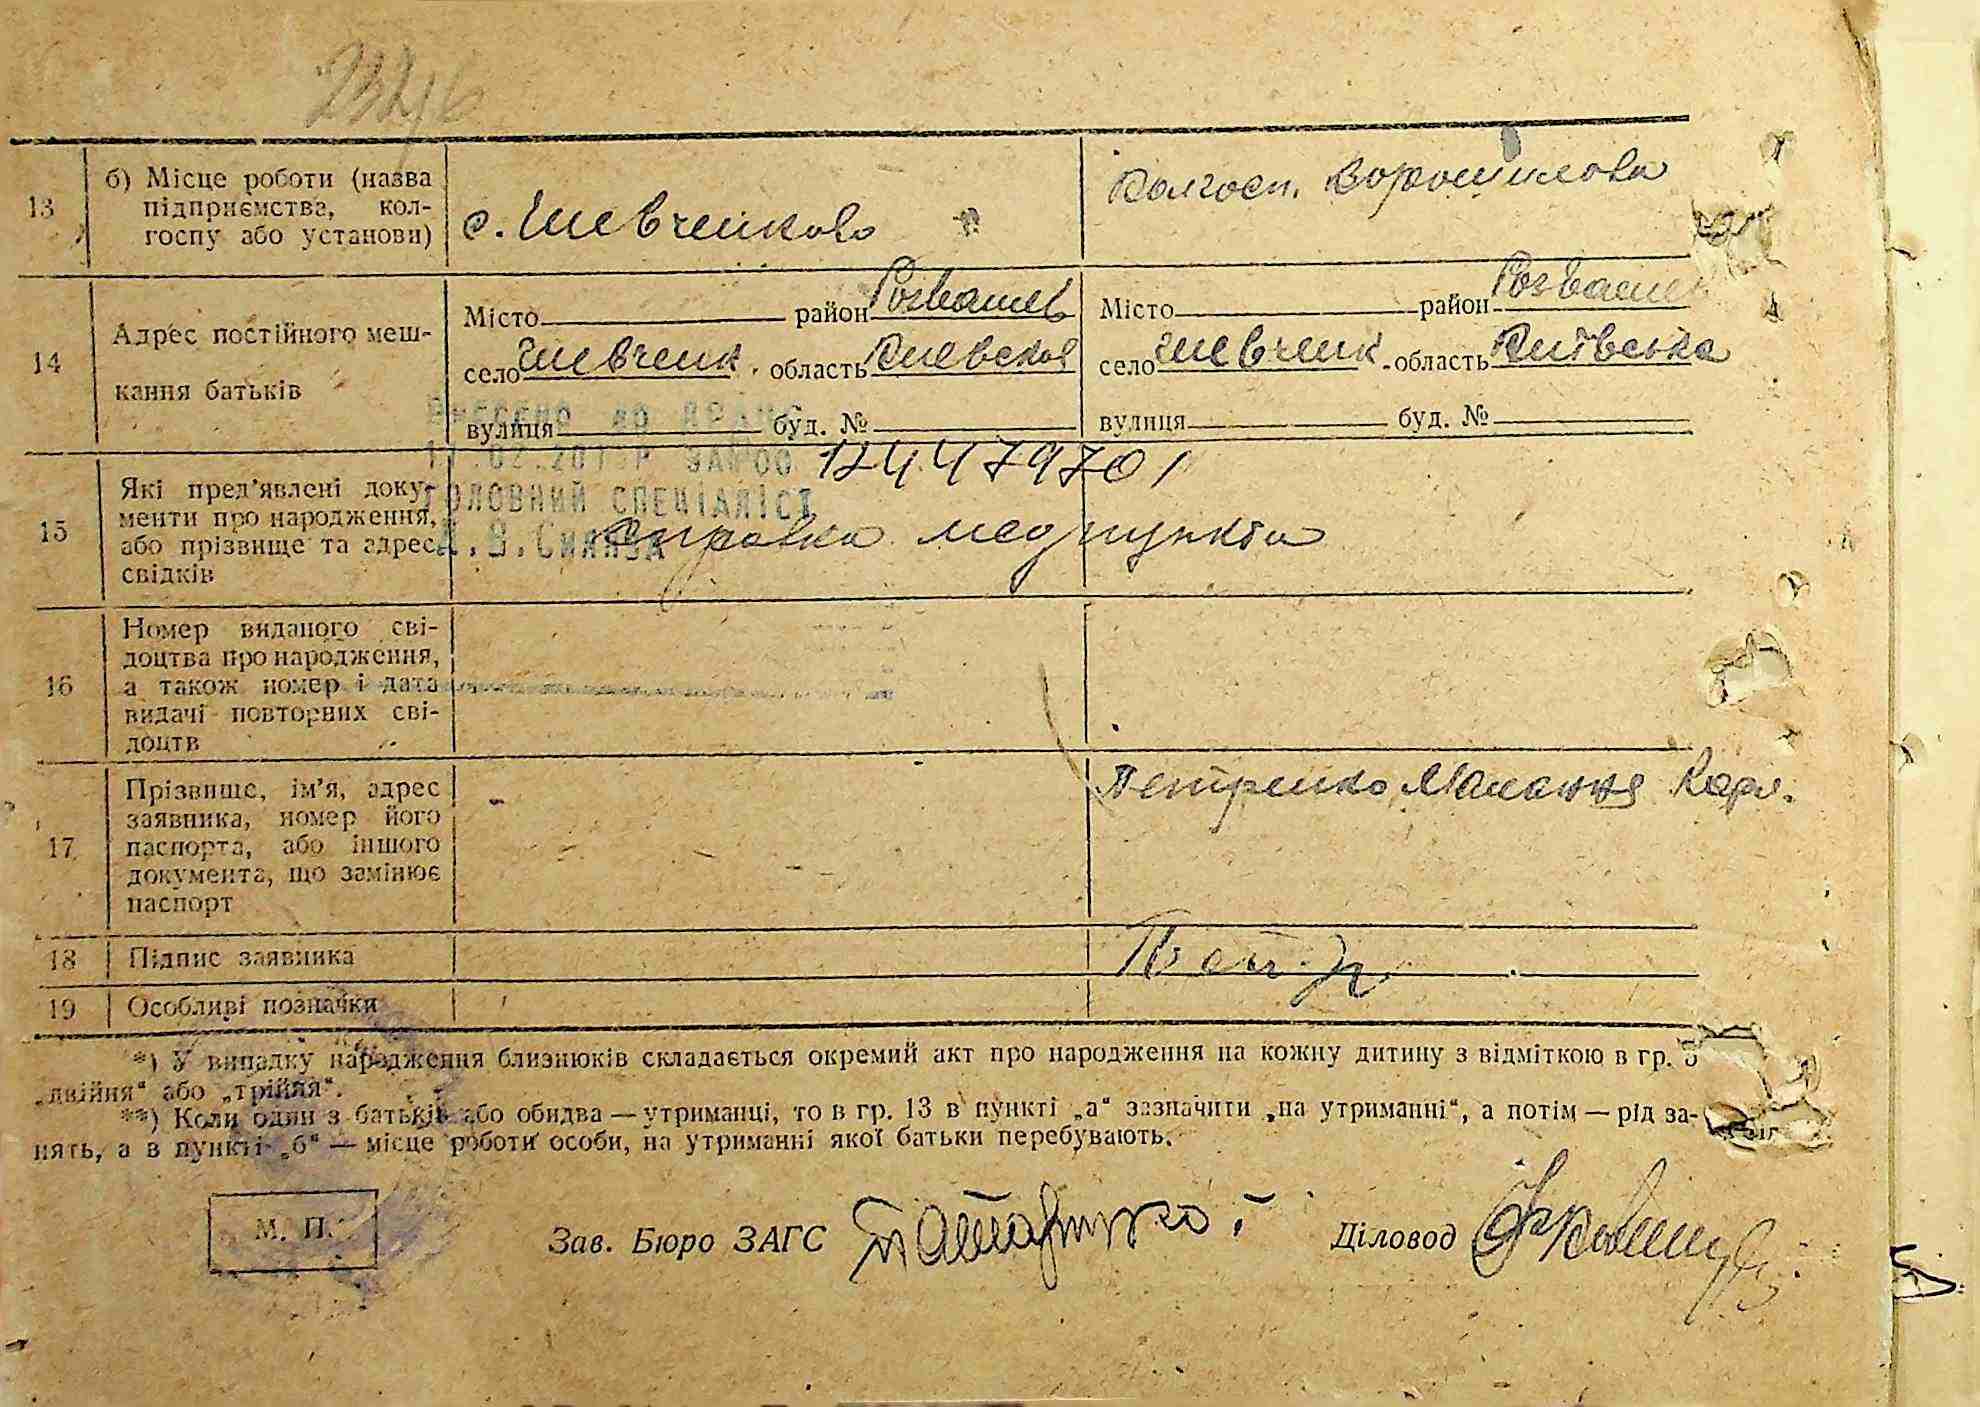 13
б) Місце роботи (назва
підприємства, кол-
госпу або установи)
с. Шевченково
Колгосп. Ворошилова
14
Адрес постійного меш-
кання батьків
Місто район Розважев
село Шевченк. область Киевская
вулиця буд. №
Місто район Розваж
село Шевченк. область Київська
вулиця буд. №
Внесено до ДРАЦС
ЗА № 00 124479701
ГОЛОВНИЙ СПЕЦІАЛІСТ
15
Які пред'явлені доку-
менти про народження,
або прізвище та адрес
свідків
Справка медпункта
16
Номер виданого сві-
доцтва про народження,
а також номер і дата
видачі повторних сві-
доцтв
17
Прізвище, ім'я, адрес
заявника, номер його
паспорта, або іншого
документа, що замінює
паспорт
Петренко Малания Карп.
18
Підпис заявника
19
Особливі позначки
*) У випадку народження близнюків складається окремий акт про народження на кожну дитину з відміткою в гр. 5
„двійня“ або „трійня“.
**) Коли один з батьків або обидва — утриманці, то в гр. 13 в пункті „а“ зазначити „на утриманні“, а потім — рід за-
нять, а в пункті „б“ — місце роботи особи, на утриманні якої батьки перебувають.
М. П.
Зав. Бюро ЗАГС
Діловод